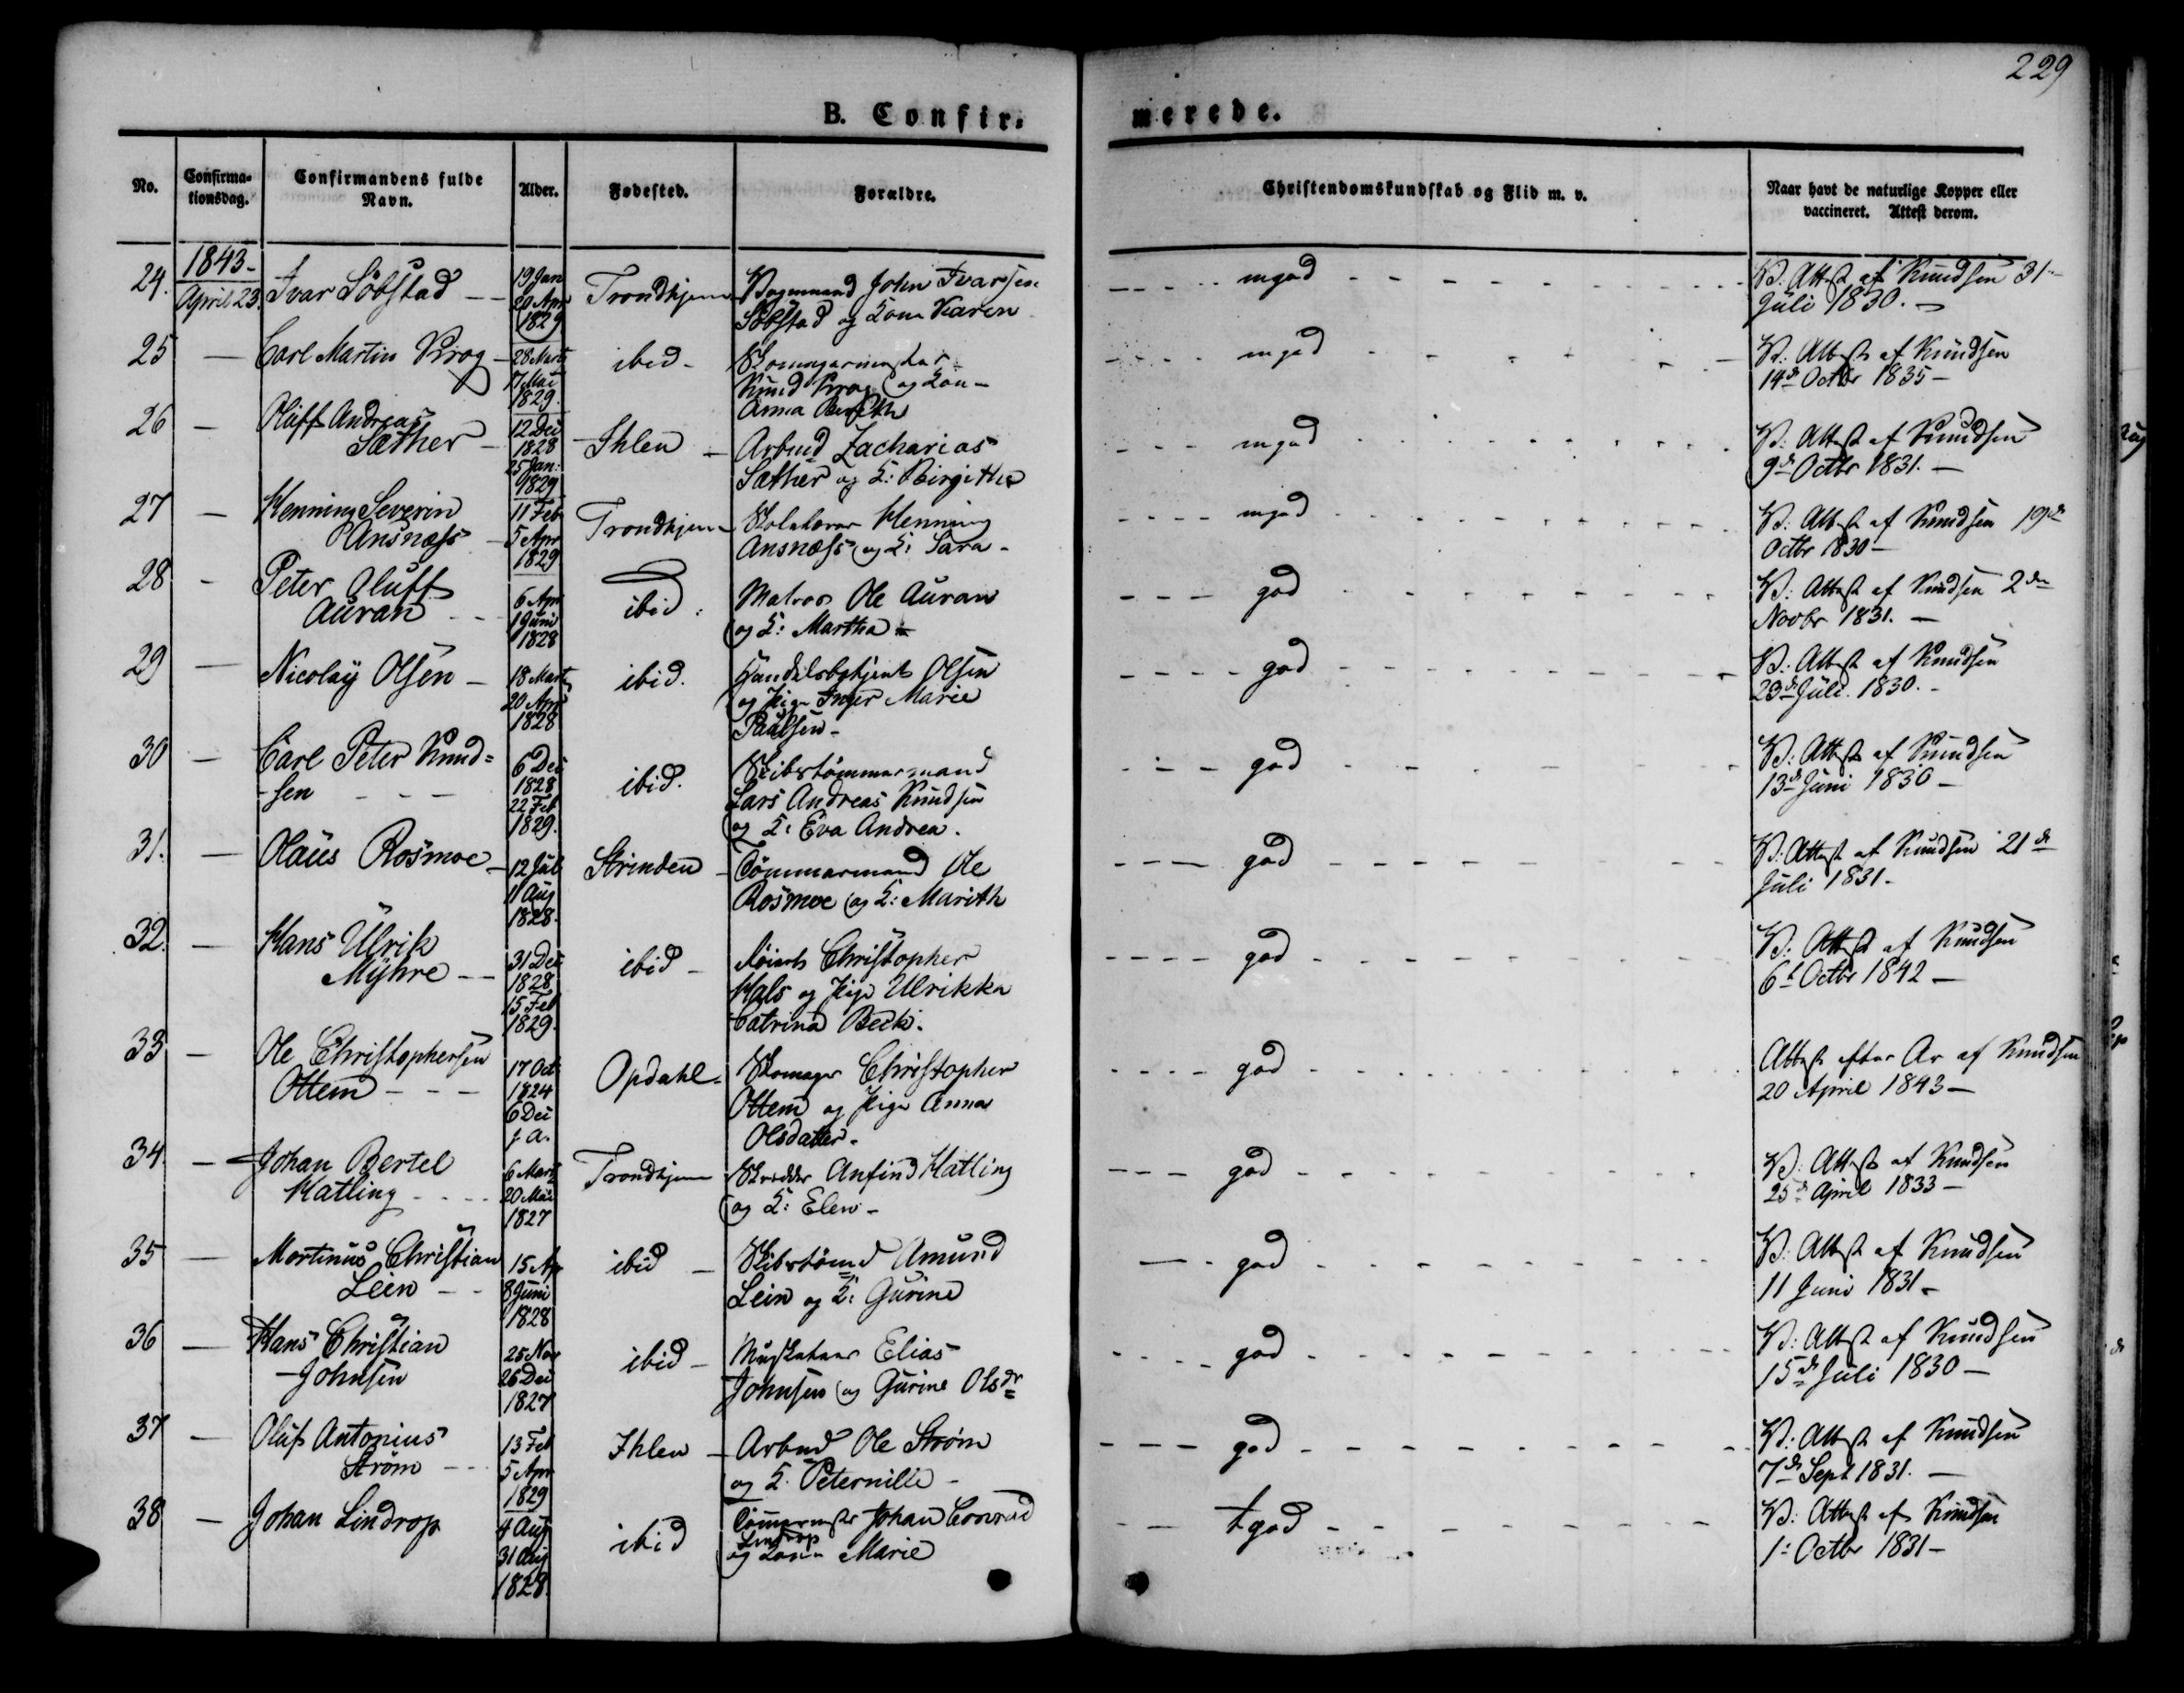 229
B. Confir-
merede.
No.
Confirma-
tionsdag.
Confirmandens fulde
Navn.
Alder.
Fødested.
Forældre.
Christendomskundskab og Flid m. v.
Naar havt de naturlige Kopper eller
vaccineret. Attest derom.
1843-
24. April 23. Ivar Söbstad - - 19 Jan Trondhjem Vognmand John Ivarsen mgod V. Attest af Knudsen 31-
20 Apr 1829 Söbstad og Kone Karen Juli 1830.
25 - Carl Martin Krog - 28 Marts ibid - Skomagermester mgod V: Attest af Knudsen
17 Mai Knud Krog og Kon- 14de Octbr 1835-
1829. Anna
26 - Oluff Andreas 12 Dec Ihlen - Arbmd Zacharias mgod V: Attest af Knudsen
Sæther - 1828 Sæther og K: Birgitha 9de Octbr 1831.-
25 Jan: 1829
27 - Henning Severin 11 Feb Trondhjem Skolelærer Henning mgod V: Attest af Knudsen 19de
Ansnæss - 5 Apr 1829 Ansnæss og K: Sara - Octbr 1830-
28 - Peter Oluff 6 Apr ibid. Matros Ole Auran god V: Attest af Knudsen 2den
Auran - - 1 Juni 1828 og K: Martha Novbr 1831.-
29 - Nicolaÿ Olsen - 18 Marts ibid. Handelsbetjent Olsen god V: Attest af Knudsen
20 Apr og Pige Inger Marie 23de Juli 1830.-
1828 Paulsen-
30 - Carl Peter Knud= 6 Dec ibid. Skibstømmermand god V: Attest af Knudsen
-sen - - - 1828 Lars Andreas Knudsen 13de Juni 1830-
22 Feb 1829. og K: Eva Andrea.
31. - Olaus Rosmoe - 12 Jul Strinden - Tömmermand Ole god V: Attest af Knudsen 21de
11 Aug 1828. Rosmoe og K: Marith Juli 1831-
32. - Hans Ulrik 31 Dec ibid - Christopher god V: Attest af Knudsen
Mÿhre - - 1828 Hals og Pige Ulrikka 6te Octbr 1842-
15 Feb 1829. Catrina Beck.
33 - Ole Christophersen 17 Oct Opdahl - Skomager Christopher god Attest efter Ar af Knudsen
Ottem - - - 1824 Ottem og Pige Anna 20 April 1843-
6 Dec s. a. Olsdatter-
34. - Johan Bertel 6 Marts Trondhjem Skrædder Anfind Hatling god V: Attest af Knudsen
Hatling - - - - 20 Mai 1827 og K: Elen- 25de April 1833-
35 - Martinus Christian 15 Ap ibid - Skibstömd Amund god V: Attest af Knudsen
Lein - - 8 Juni 1828 Lein og K: Gurine 11 Juni 1831-
36 - Hans Christian 25 Nov ibid - Musketeer Elias god V: Attest af Knudsen
-Johnsen 26 Dec 1827 Johnsen og Gurine Olsdr 15de Juli 1830-
37 - Oluf Antonius 13 Feb Ihlen - Arbmd Ole Strøm god V: Attest af Knudsen
Strøm - - 5 Apr 1829 og K. Peternille - 7de Sept 1831.-
38 - Johan Lindrop 4 Aug ibid Tömermstr Johan Conrad tgod V: Attest af Knudsen
31 Aug Lindrop 1: Octbr 1831-
1828. og Kone Marie